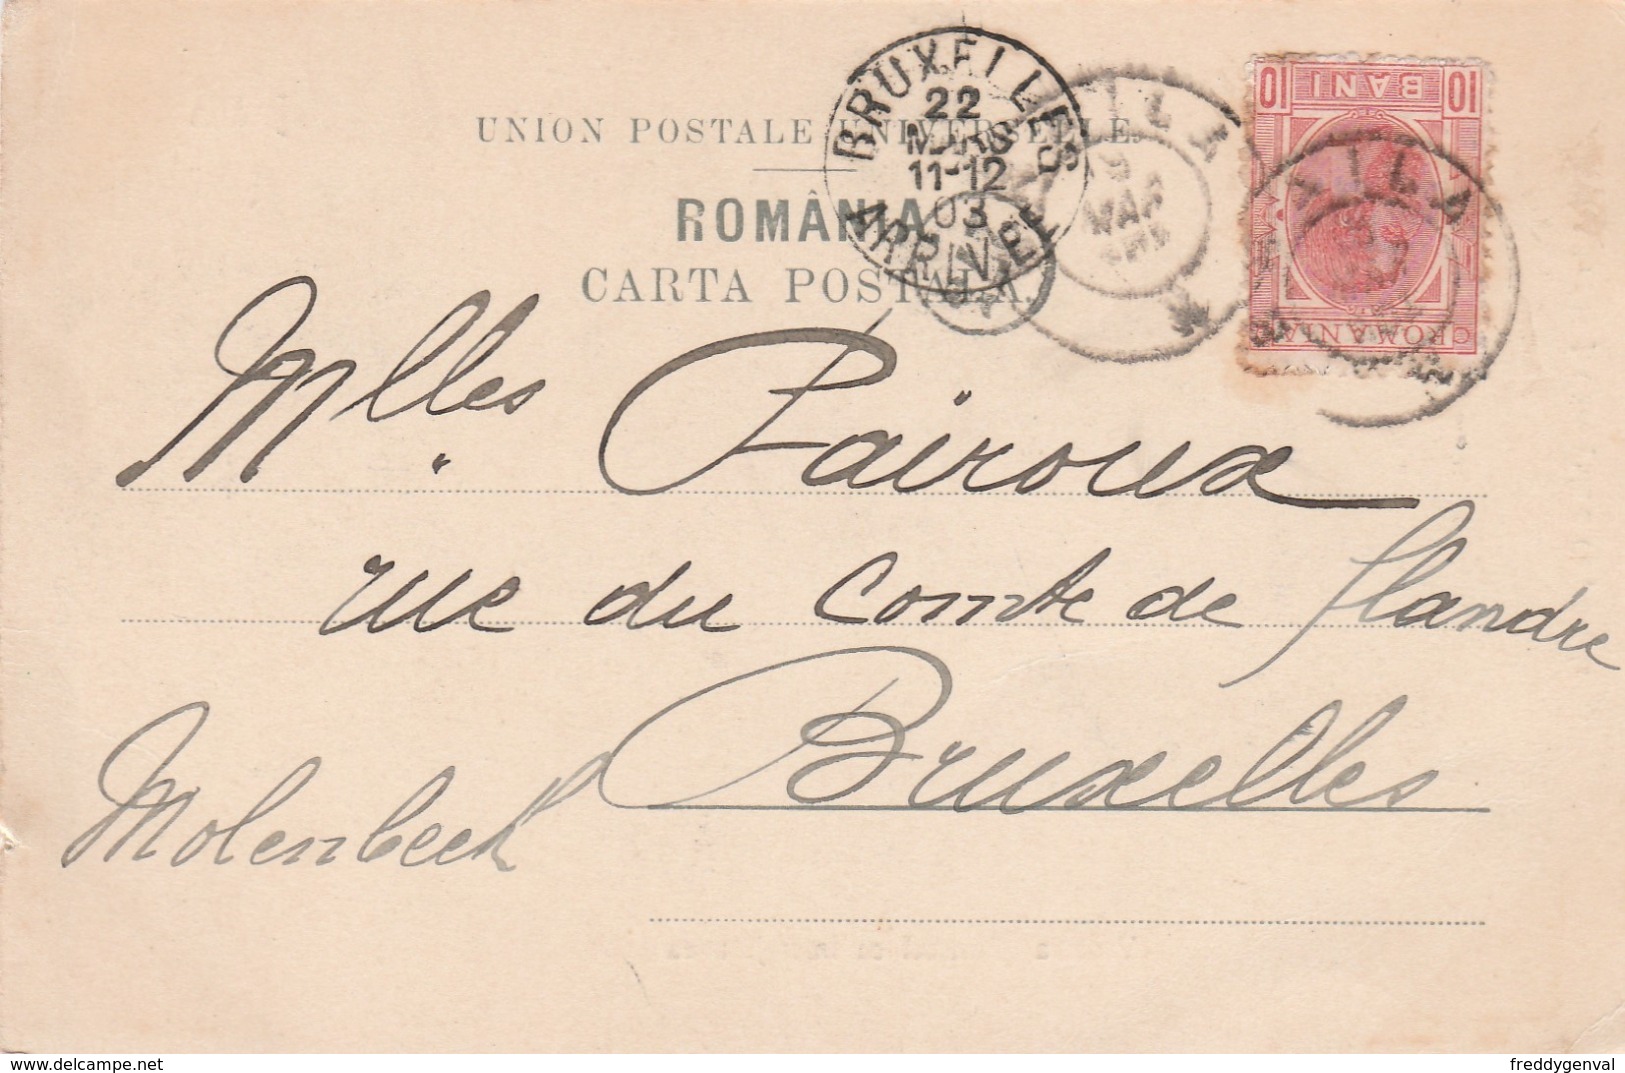 UNION POSTALE UNIVERSELLE.
ROMÂNIA
CARTA POSTALA.
BRUXELLES
22
MARS
11-12
03
ARRIVÉE
10 BANI 10
ROMANIA
Mlles Pairoux
rue du Comte de flandre
Bruxelles
Molenbeek
delcampe.net
freddygenval